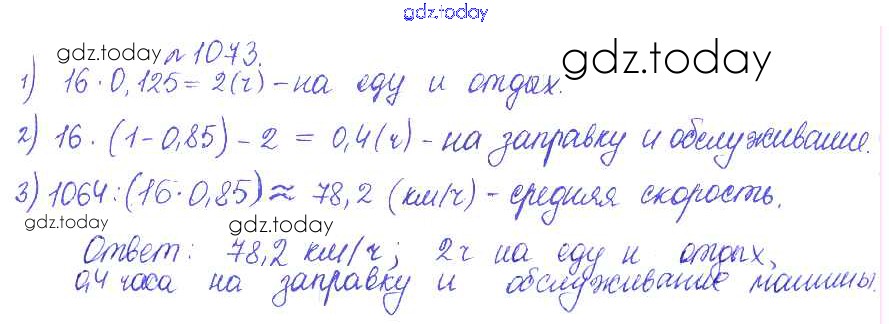 gdz.today
gdz.today № 1073.
1) 16 · 0,125 = 2 (ч) - на еду и отдых. gdz.today
2) 16 · (1 - 0,85) - 2 = 0,4 (ч) - на заправку и обслуживание.
3) 1064 : (16 · 0,85) ≈ 78,2 (км/ч) - средняя скорость.
gdz.today gdz.today
Ответ: 78,2 км/ч; 2ч на еду и отдых,
0,4 часа на заправку и обслуживание машины.